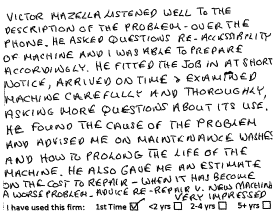 VICTOR MAZELLA LISTENED WELL TO THE
DESCRIPTION OF THE PROBLEM - OVER THE
PHONE. HE ASKED QUESTIONS RE-ACCESSIBILITY
OF MACHINE AND I WAS ABLE TO PREPARE
ACCORDINGLY. HE FITTED THE JOB IN AT SHORT
NOTICE, ARRIVED ON TIME & EXAMINED
MACHINE CAREFULLY AND THOROUGHLY,
ASKING MORE QUESTIONS ABOUT ITS USE.
HE FOUND THE CAUSE OF THE PROBLEM
AND ADVISED ME ON MAINTENANCE WASHES
AND HOW TO PROLONG THE LIFE OF THE
MACHINE. HE ALSO GAVE ME AN ESTIMATE
ON THE COST TO REPAIR - WHEN IT HAS BECOME
A WORSE PROBLEM. ADVICE RE-REPAIR V. NEW MACHINE
VERY IMPRESSED
I have used this firm: 1st Time ☑ <2 yrs ☐ 2-4 yrs ☐ 5+ yrs ☐